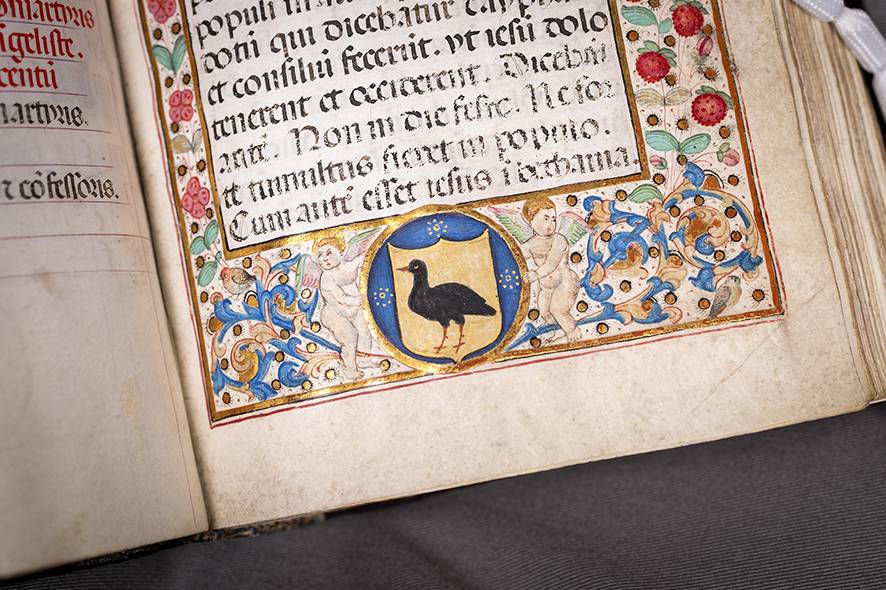 omartyris
igeliste.
centii
martyris.
r cōfessoris.
populi in
dotū qui dicebatur Cayphas
et consiliū fecerūt. vt iesū dolo
tenerent et occiderent. Dicebāt
autē. Non in die festo. Ne for
te tumultus fieret in populo.
Cum autē esset iesus i bethania.